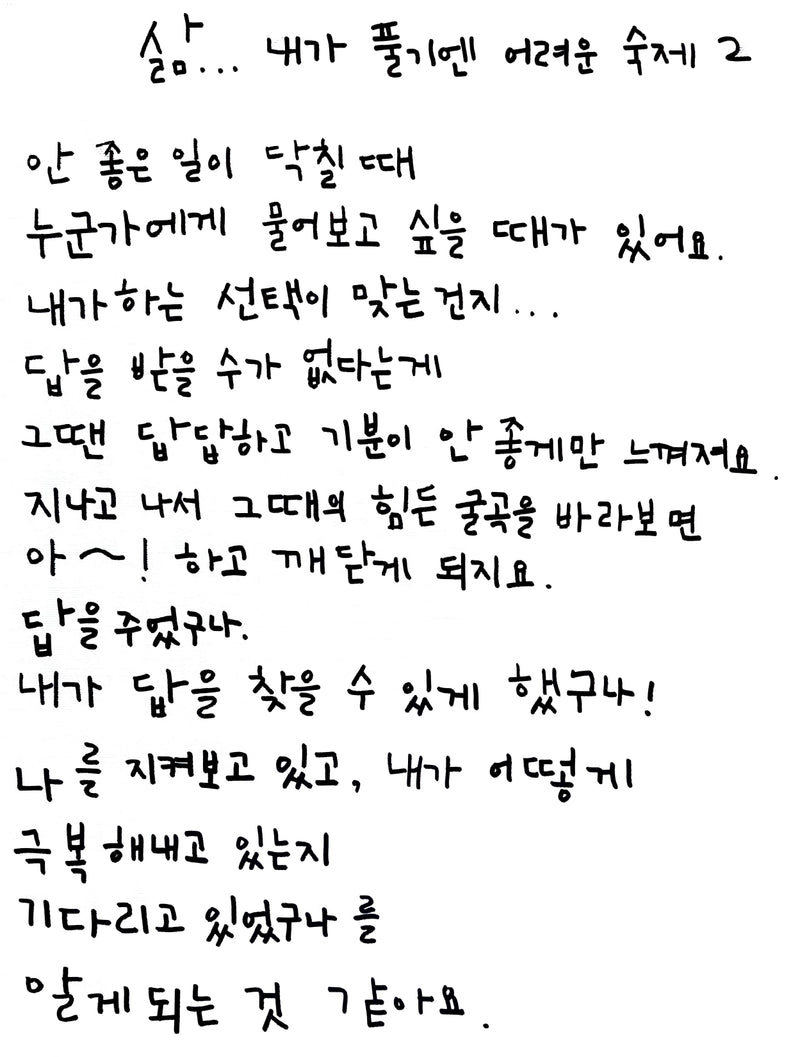 삶... 내가 풀기엔 어려운 숙제 2
안 좋은 일이 닥칠 때
누군가에게 물어보고 싶을 때가 있어요.
내가 하는 선택이 맞는 건지...
답을 받을 수가 없다는게
그땐 답답하고 기분이 안 좋게만 느껴져요.
지나고 나서 그때의 힘든 굴곡을 바라보면
아~! 하고 깨닫게 되지요.
답을 주었구나.
내가 답을 찾을 수 있게 했구나!
나를 지켜보고 있고, 내가 어떻게
극복해내고 있는지
기다리고 있었구나 를
알게 되는 것 같아요.